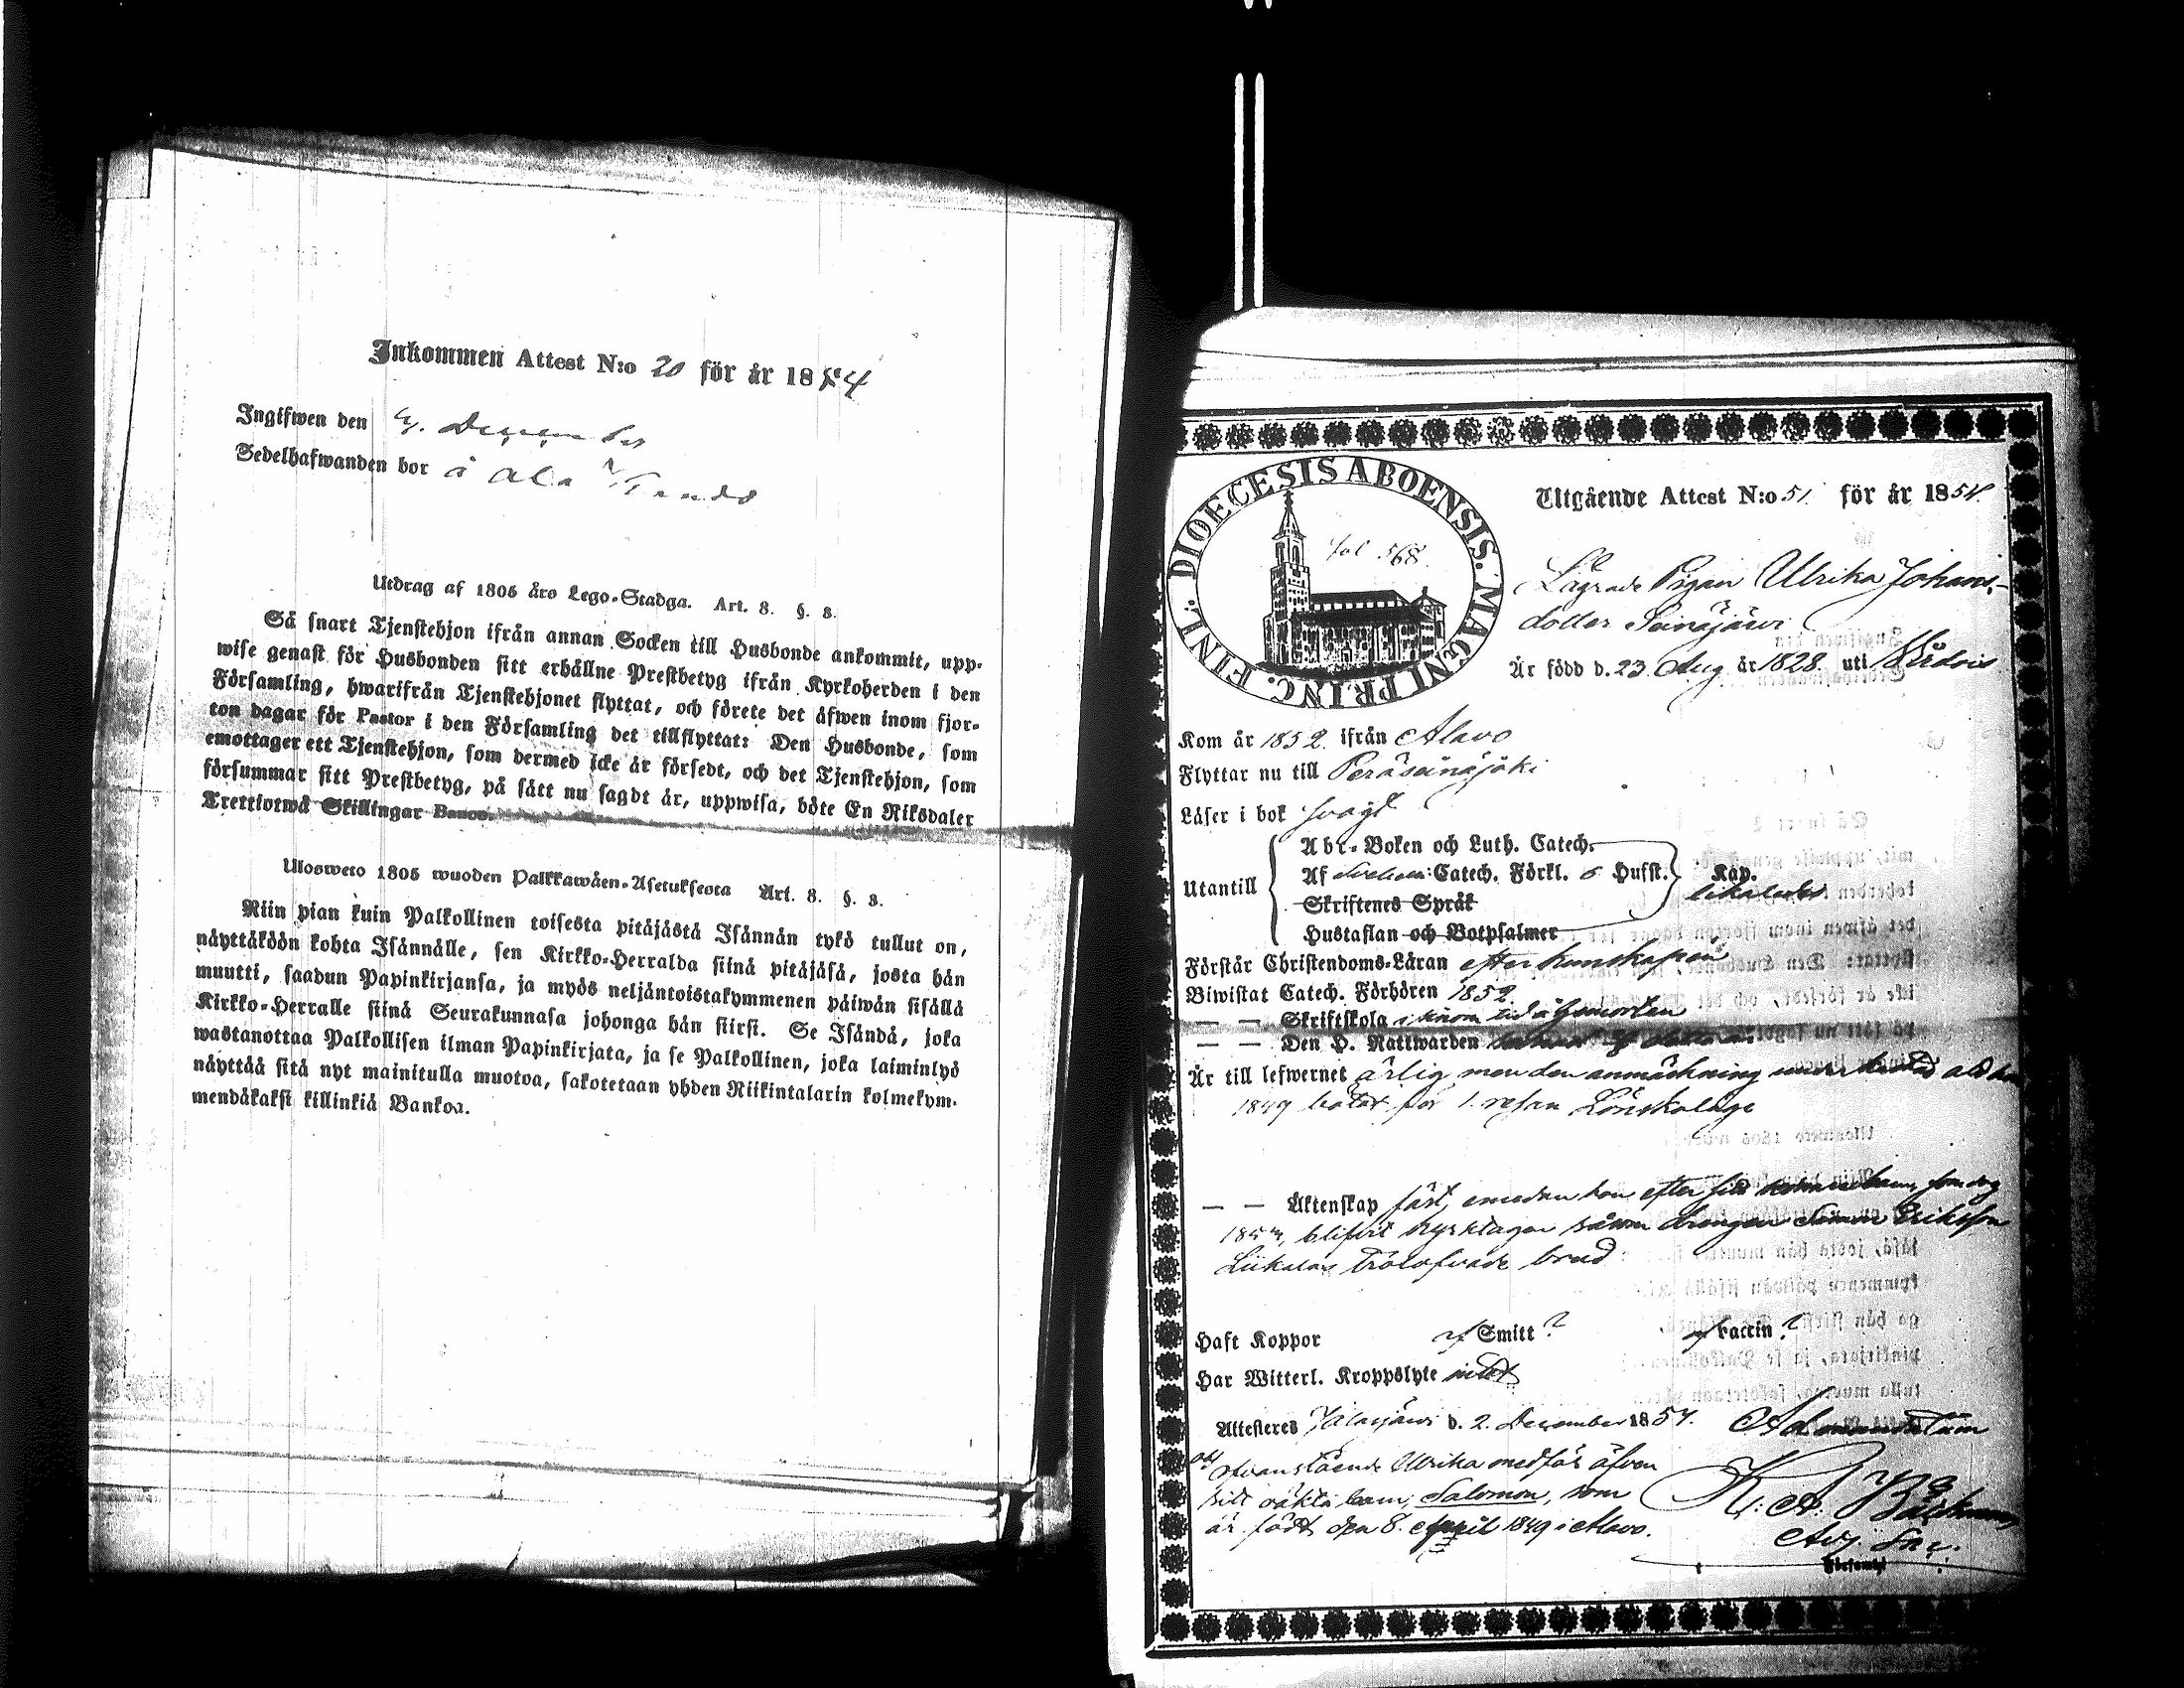 Inkommen Attest N:o 20 för år 1854
Ingifwen den 4. December
Sedelhafwanden bor å Ala
Utdrag af 1805 års Lego-Stadga. Art. 8. §. 3.
Så snart Tjenstehjon ifrån annan Socken till Husbonde ankommit, upp-
wise genast för Husbonden sitt erhållne Prestbetyg ifrån Kyrkoherden i den
Församling, hwarifrån Tjenstehjonet flyttat, och förete det äfwen inom fjor-
ton dagar för Pastor i den Församling det tillflyttat: Den Husbonde, som
emottager ett Tjenstehjon, som dermed icke är försedt, och det Tjenstehjon, som
försummar sitt Prestbetyg, på sätt nu sagdt är, uppwisa, böte En Riksdaler
Trettiotwå Skillingar Banco.
Ulosweto 1805 wuoden Palkkawäen-Asetuksesta Art. 8. §. 3.
Niin pian kuin Palkollinen toisesta pitäjästä Isännän tykö tullut on,
näyttäköön kohta Isännälle, sen Kirkko-Herralda siinä pitäjäsä, josta hän
muutti, saadun Papinkirjansa, ja myös neljäntoistakymmenen päiwän sisällä
Kirkko-Herralle siinä Seurakunnasa johonga hän siirsi. Se Isändä, joka
wastanottaa Palkollisen ilman Papinkirjata, ja se Palkollinen, joka laiminlyö
näyttää sitä nyt mainitulla muotoa, sakotetaan yhden Riikintalarin kolmekym-
mendäkaksi killinkiä Bankoa.
DIOECESIS ABOENSIS. MAGNI PRINC. FINL.
fol 568
Utgående Attest N:o 51 för år 1854
Lägrade Pigan Ulrika Johans-
dotter Seinäjärvi
Är född d. 23 Aug år 1828. uti Wirdois
Kom år 1852. ifrån Alavo
Flyttar nu till Peräseinäjoki
Läser i bok svagt
Utantill
Abc-Boken och Luth. Catech.
Af Svebelii Catech. Förkl. 6 Hufst. Kap.
Skriftenes Språk
Hustaflan och Botpsalmer
Förstår Christendoms-Läran efter kunskapen
Biwistat Catech. Förhören 1852
— — Skriftskola
— — Den H. Nattwarden
Är till lefwernet ärlig, men den anmärkning
1849 bötat för 1. resan Lönskaläge
— — Äktenskap fäst, emedan hon efter sitt
1854, blifvit kyrktagen såsom drängen Simon Eriksson
trolofvade brud
Haft Koppor af Smitt ? af Vaccin ?
Har Witterl. Kroppslyte intet
Attesteres Jalasjärvi d. 2. December 1854.
Ad mandatum
Ofvanstående Ulrika medför äfven
sitt oäkta barn, Salomon, som
är född den 8. April 1849 i Alavo.
K. A.
Adj. Sac.